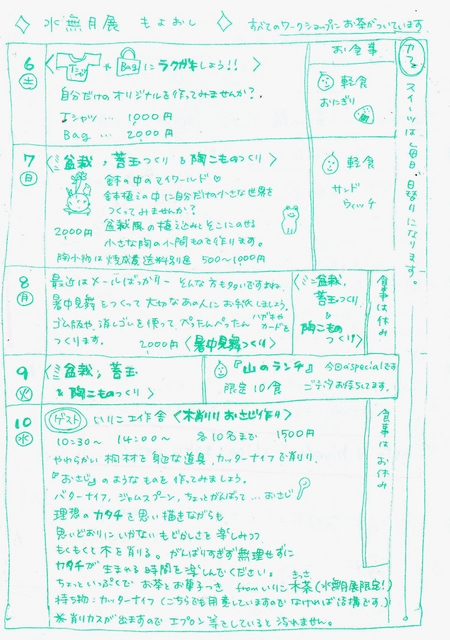 ◇ 水無月展 もよおし ◇ すべてのワークショップにお茶がついています
お食事
カフェ
スイーツは毎日、日替りになります。
6
(土)
〈Tシャツ や Bag にラクガキしよう!!〉
自分だけのオリジナルを作ってみませんか?
Tシャツ … 1,000円
Bag … 2,000円
軽食
おにぎり
7
(日)
〈ミニ盆栽、苔玉つくり & 陶こものつくり〉
鉢の中のマイワールド♡
鉢植えの中に自分だけの小さな世界を
つくってみませんか?
盆栽風の植え込みとそこにのせる
小さな陶の小間もので作ります。
2,000円
陶小物は焼成費 送料別途 500〜1,000円
軽食
サンド
ウィッチ
8
(月)
最近はメールばっかり… そんな方も多いですよね。
暑中見舞をつくって大切なあの人にお手紙しましょう。
ゴム版や、消しゴムを使って、ぺったんぺったん ハガキや
カードを
つくります。 2,000円 〈暑中見舞つくり〉
〈ミニ盆栽、
苔玉つくり、
&
陶こもの
つくり〉
食事は休み
9
(火)
〈ミニ盆栽、苔玉
& 陶こものつくり〉
『山のランチ』 今回のspecialです
限定10食 ご予約お待ちしてます。
10
(水)
ゲスト いりこ工作舎〈木削りおさじ作り〉
10:30〜 14:00〜 各10名まで 1500円
やわらかい桐材を身近な道具、カッターナイフで削り、
『おさじ』のようなものを作ってみましょう。
バターナイフ、ジャムスプーン、ちょっとがんばって…おさじ
理想のカタチを思い描きながらも
思いどおりにいかないもどかしさを楽しみつつ
もくもくと木を削る。がんばりすぎず無理せずに
カタチが生まれる時間を楽しんでください。
ちょっといっぷくで お茶とお菓子つき fromいりこ木茶(水無月展限定!)
もっさ
持ち物:カッターナイフ(こちらでも用意していますのでなければ結構です。)
※削りカスが出ますのでエプロン等をしていると汚れません。
食事はお休み